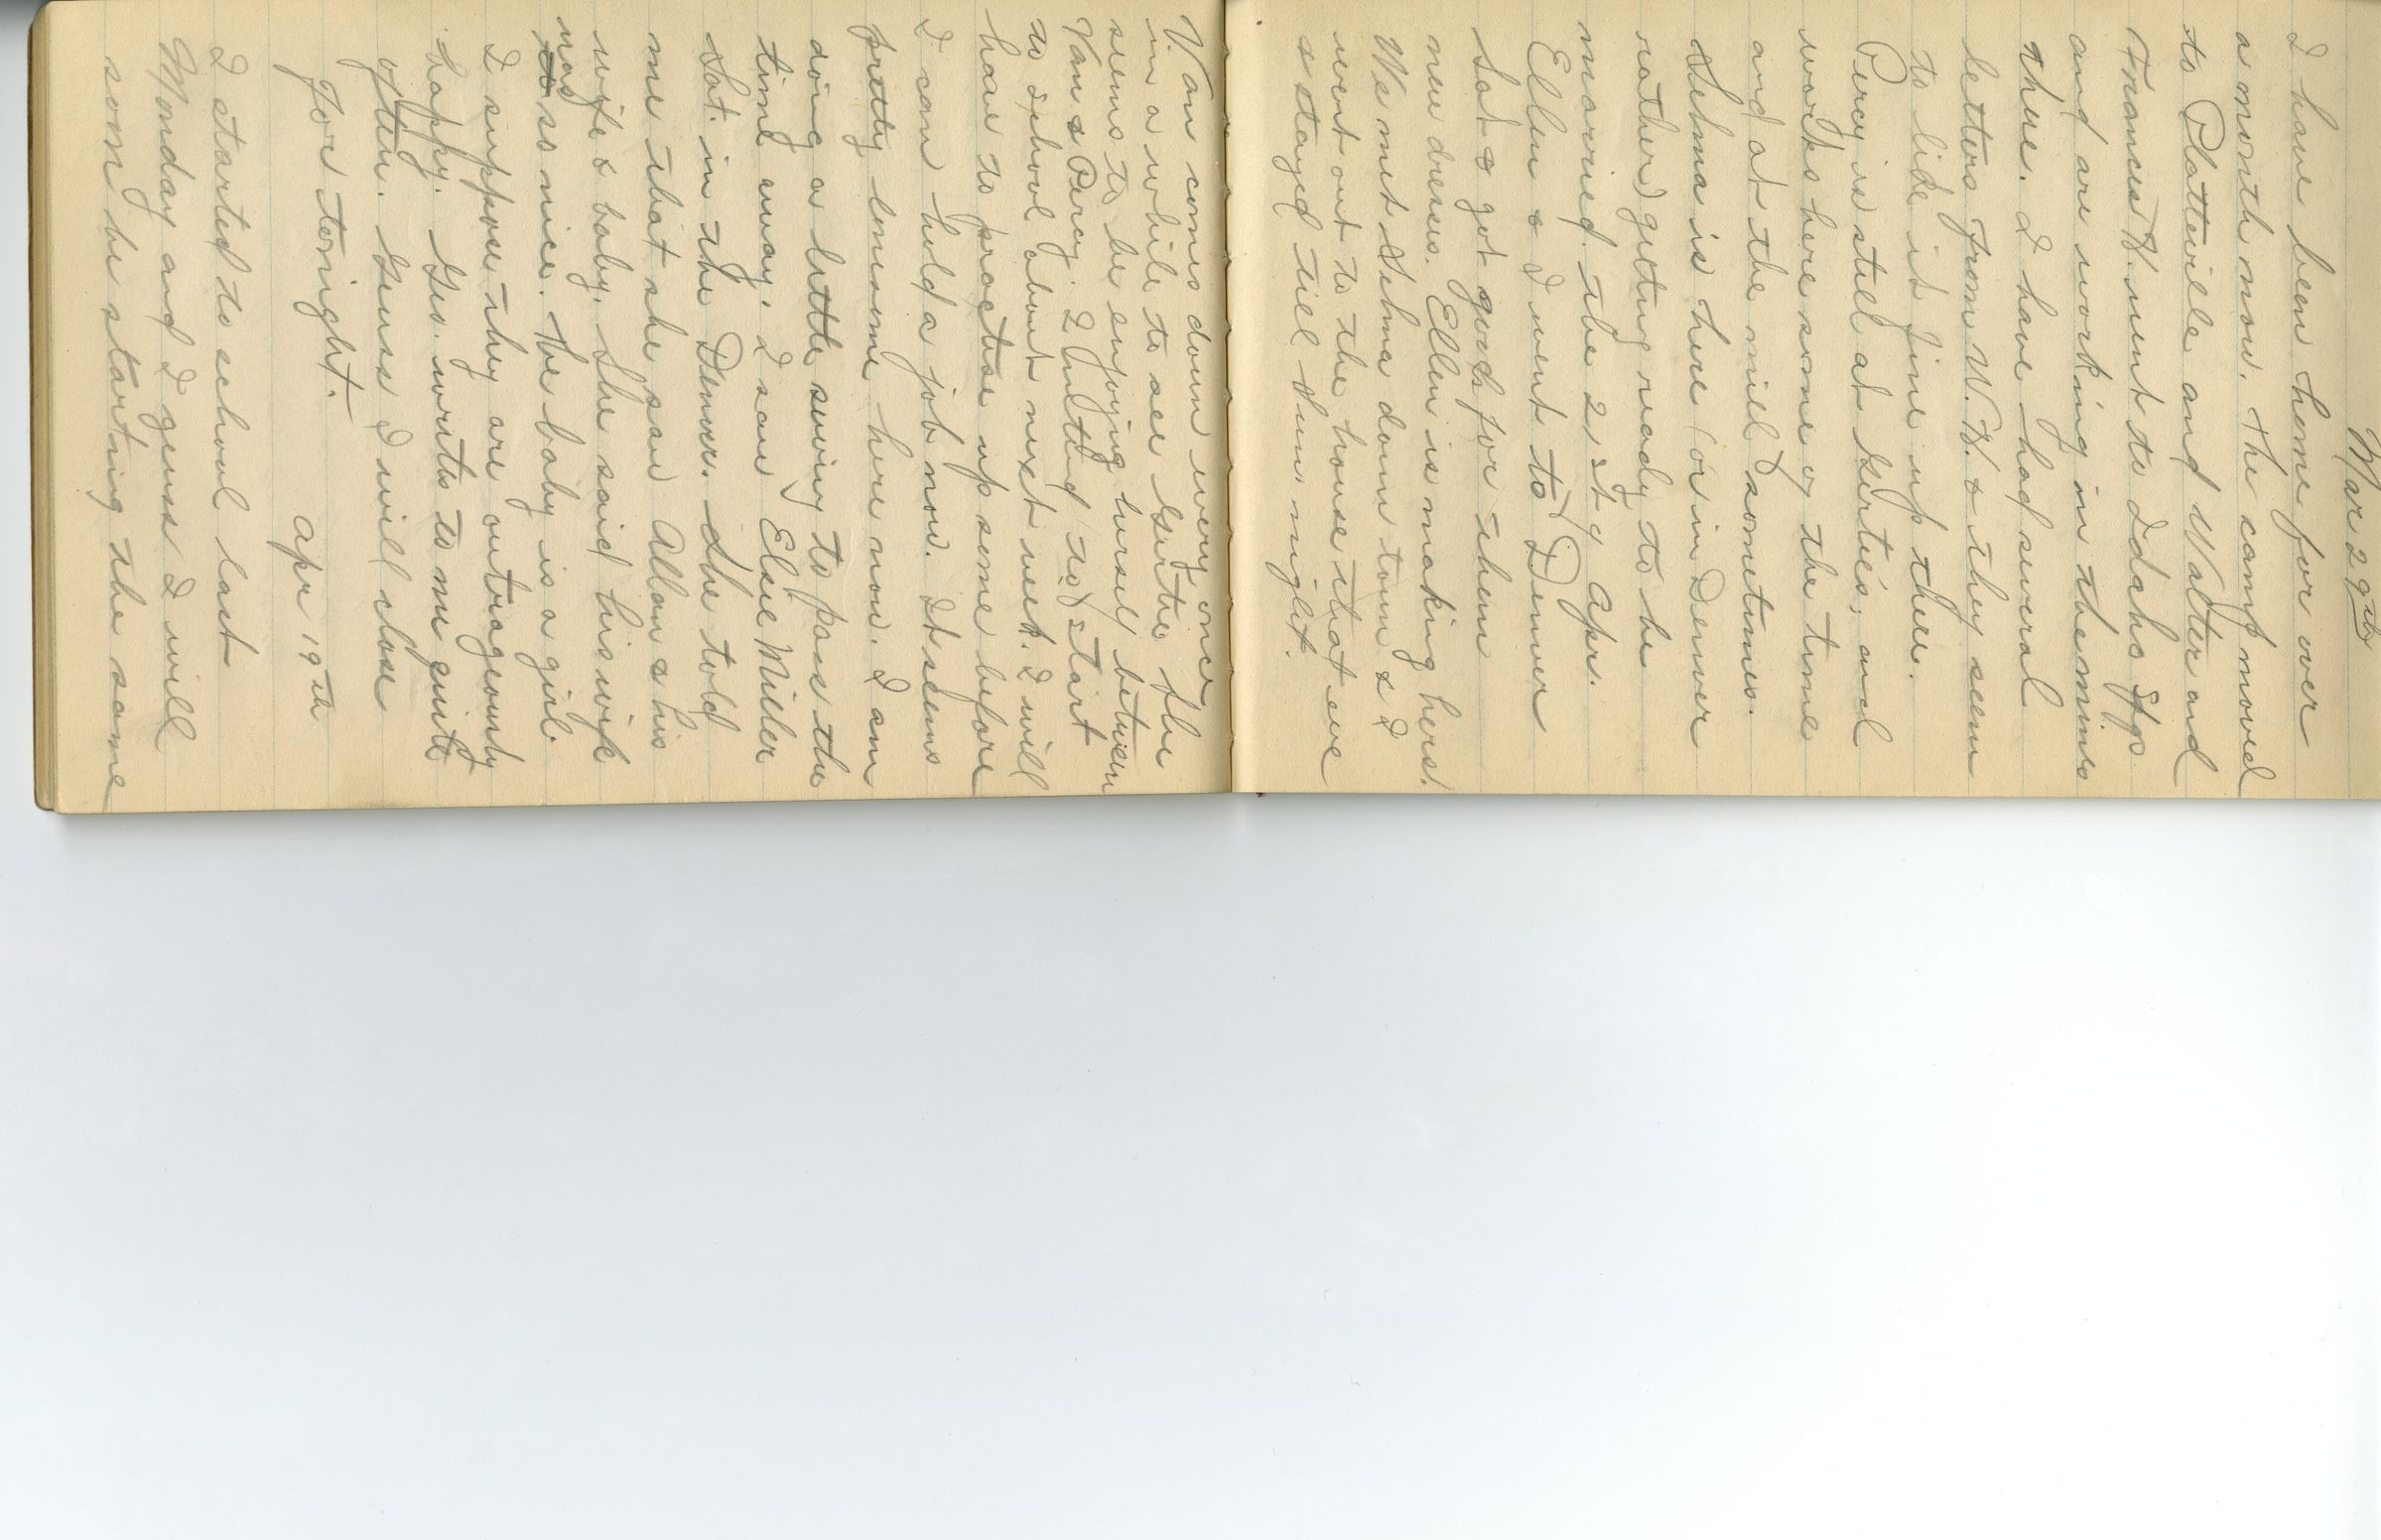 Mar 29th
I have been home for over
a month now. The camp moved
to Platteville and Walter and
Frances B. went to Idaho Spgs
and are working in the mines
there. I have had several
letters from W.B. & they seem
to like it fine up there.
Percy is still at Gertie's, and
works here some of the time
and at the mill sometimes.
Selma is here (or in Denver
rather) getting ready to be
married the 21st of Apr.
Ellen & I went to Denver
Sat & got goods for them
new dresses. Ellen is making hers.
We met Selma down town & I
went out to the house that eve
& stayed till Sun. night.
Van comes down every once
in a while to see Gertie she
seems to be enjoying herself between
Van & Percy. I intend to start
to school about next week. I will
have to practise up some before
I can hold a job now. It seems
pretty lonesome here now. I am
doing a little sewing to pass the
time away. I saw Elsie Miller
Sat. in the Denver. She told
me that she saw Allan & his
wife & baby. She said his wife
was so nice. The baby is a girl.
I suppose they are outrageously
happy. Geo. writes to me quite
often. Guess I will close
for tonight.
Apr 19th
I started to school last
Monday and I guess I will
soon be starting the same